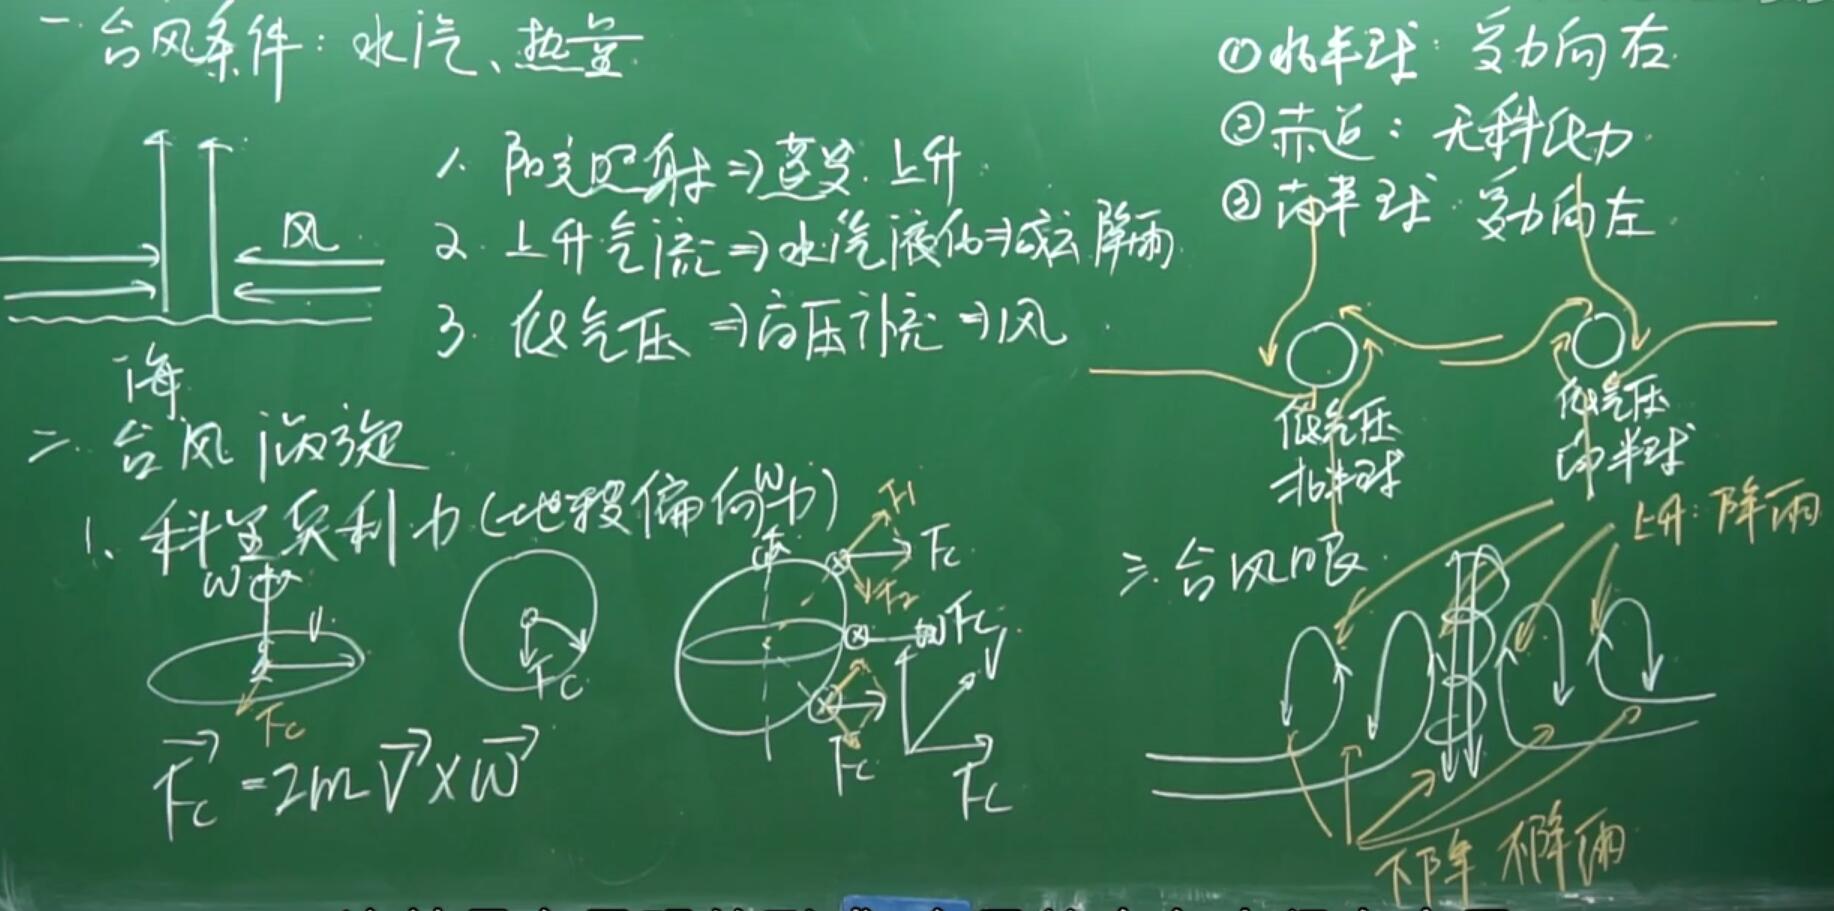 一. 台风条件: 水汽、热量
1. 阳光照射⇒蒸发.上升
2. 上升气流⇒水汽液化⇒成云降雨
3. 低气压⇒高压补充⇒风
风
海
二. 台风涡旋
1. 科里奥利力(地转偏向力)
ω
V
Fc
Fc
ω
F1
Fc
F2
Fc
ω
V
Fc
Fc
Fc=2mV×ω
①北半球: 受力向右
②赤道: 无科氏力
③南半球: 受力向左
低气压
北半球
低气压
南半球
三. 台风眼
上升: 降雨
下降 不降雨